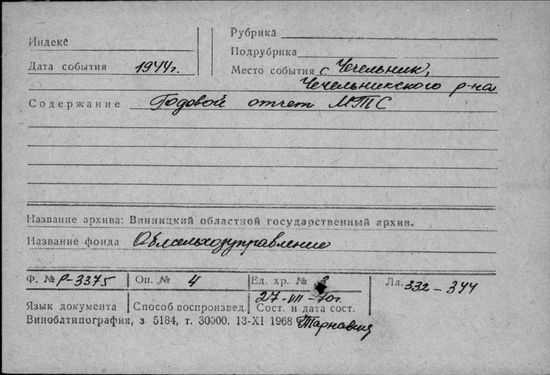 Индекс
Рубрика
Подрубрика
Дата события 1944г.
Место события с. Чечельник,
Чечельникского р-на
Содержание Годовой отчет МТС
Название архива: Винницкий областной государственный архив.
Название фонда Облсельхозуправление
Ф. № Р-3375 Оп. № 4 Ед. хр. № Лл. 332-344
27-VII-70г.
Язык документа Способ воспроизвед. Сост. и дата сост.
Винобатипография, з. 5184, т. 30000. 13-XI 1968